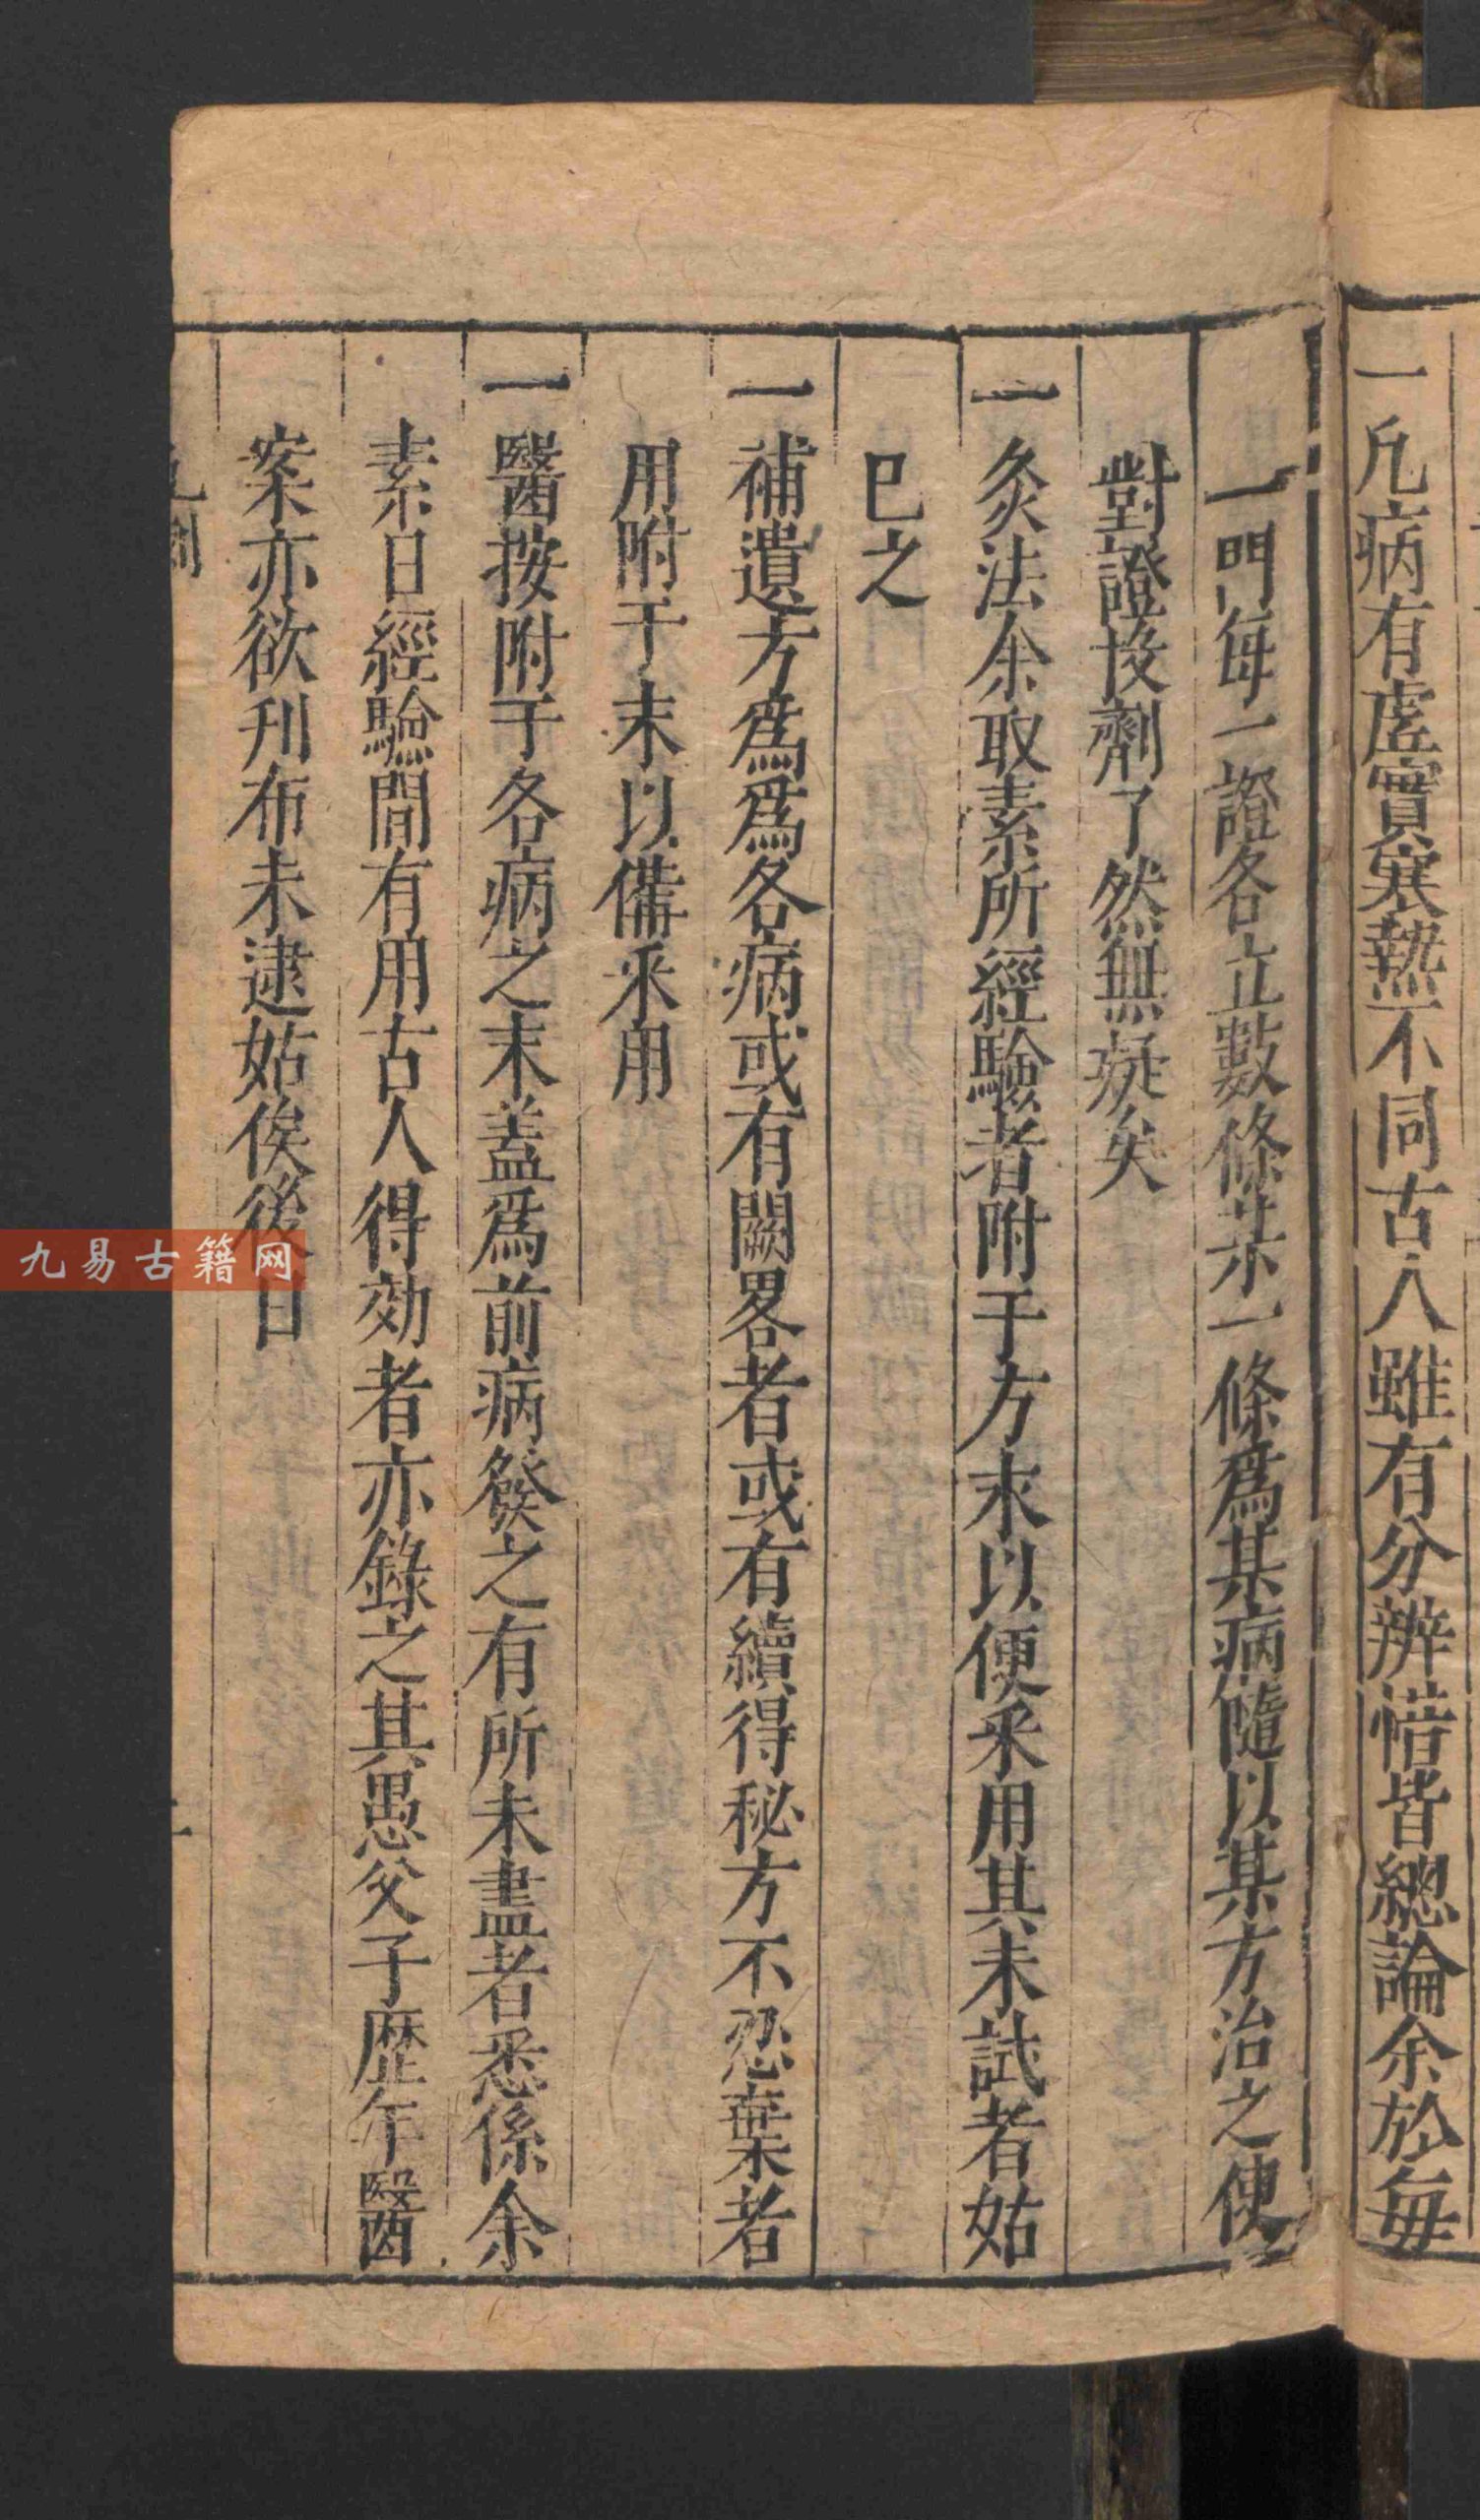 一凡病有虛實寒熱不同古人雖有分辨惜皆總論余於每
一門每一證各立數條某一條爲某病隨以某方治之使
對證投劑了然無疑矣
一灸法余取素所經驗者附于方末以便采用其未試者姑
已之
一補遺方爲爲各病或有闕畧者或有續得秘方不忍棄者
用附于末以備采用
一醫按附于各病之末蓋爲前病發之有所未盡者悉係余
素日經驗間有用古人得効者亦錄之其愚父子歷年醫
案亦欲刊布未逮姑俟後日
九易古籍网